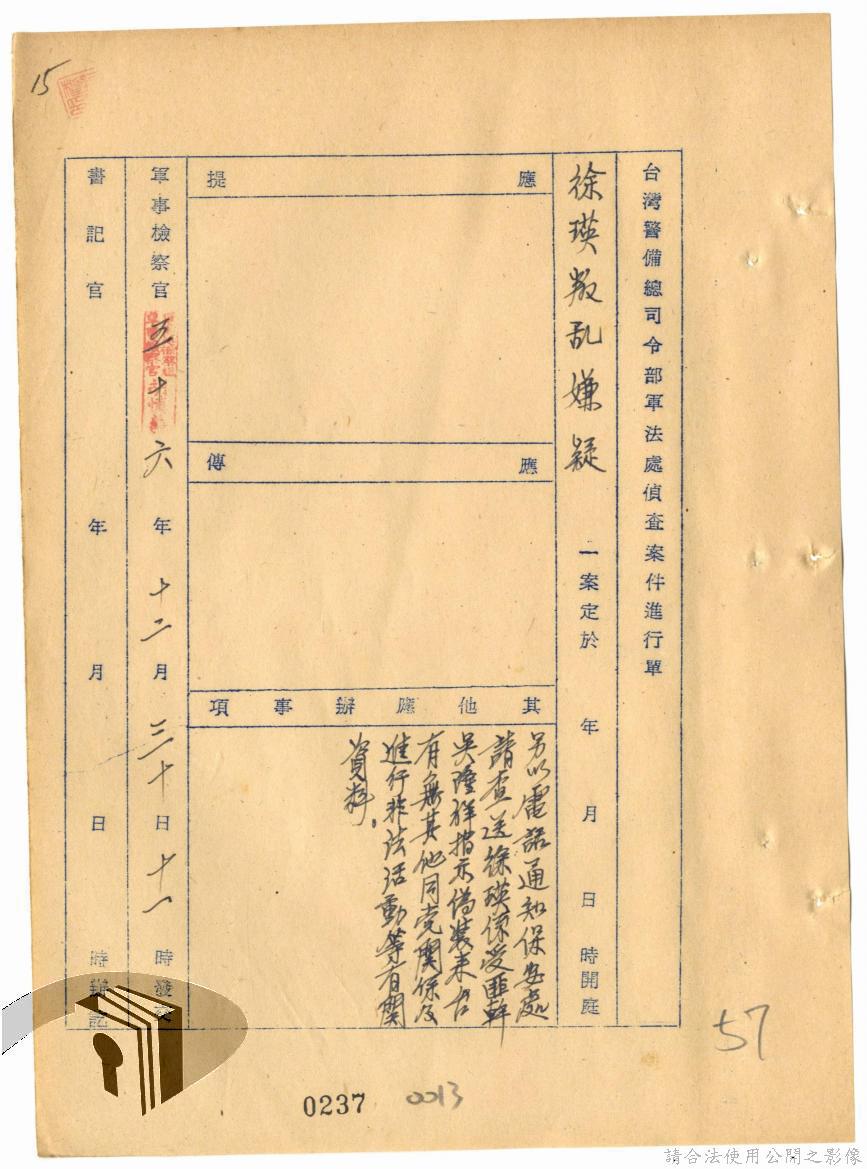 15
台灣警備總司令部軍法處偵查案件進行單
徐瑛叛乱嫌疑 一案定於 年 月 日 時開庭
應 提
應 傳
其他應辦事項
另以電話通知保安處
請查送徐瑛係受匪幹
吳隆祥指示偽裝來台
有無其他同党関係及
進行非法活動等有関
資料。
軍事檢察官 五十六年十二月三十日十一時發交
書記官 年 月 日 時辦訖
57
0237
0013
請合法使用公開之影像